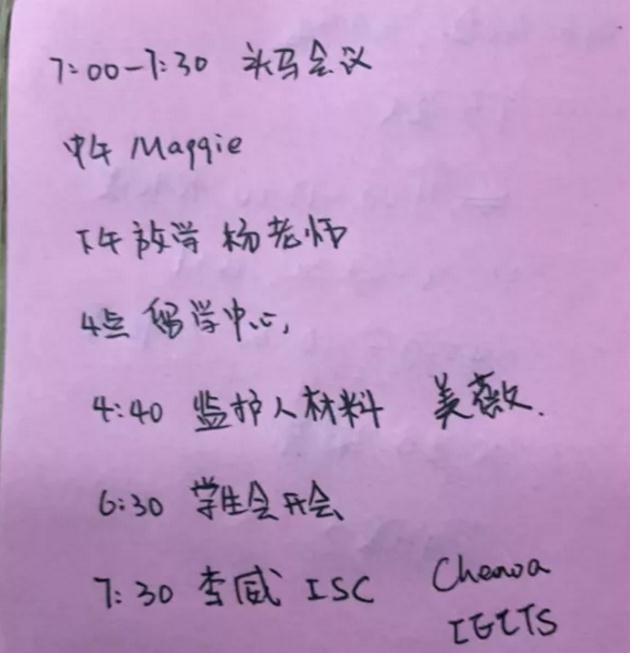 7:00-7:30 头马会议
中午 Maggie
下午放学 杨老师
4点 留学中心,
4:40 监护人材料 美薇.
6:30 学生会开会
7:30 李威 ISC Chenoa
IELTS